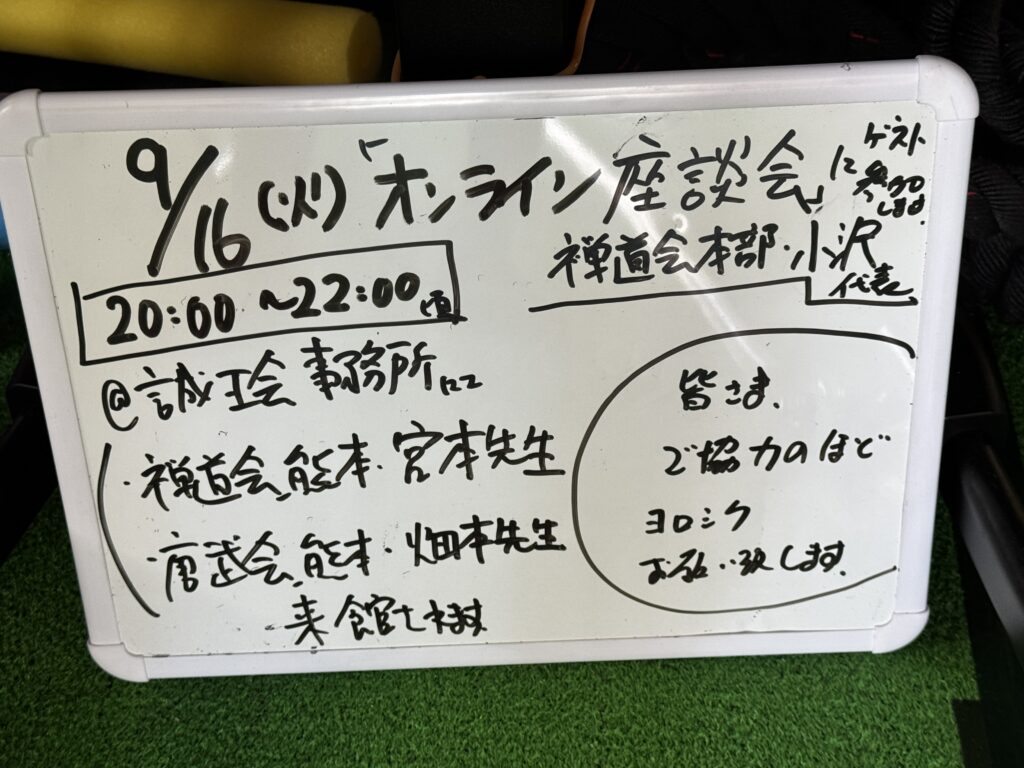 9/16(火)「オンライン座談会」に
ゲスト
参加
します
禅道会本部・小沢
代表
20:00~22:00頃
@誠王会 事務所にて
・禅道会、熊本・宮本先生
・唐武会、熊本・畑本先生
来館されます
皆さま、
ご協力のほど
ヨロシク
お願い致します。